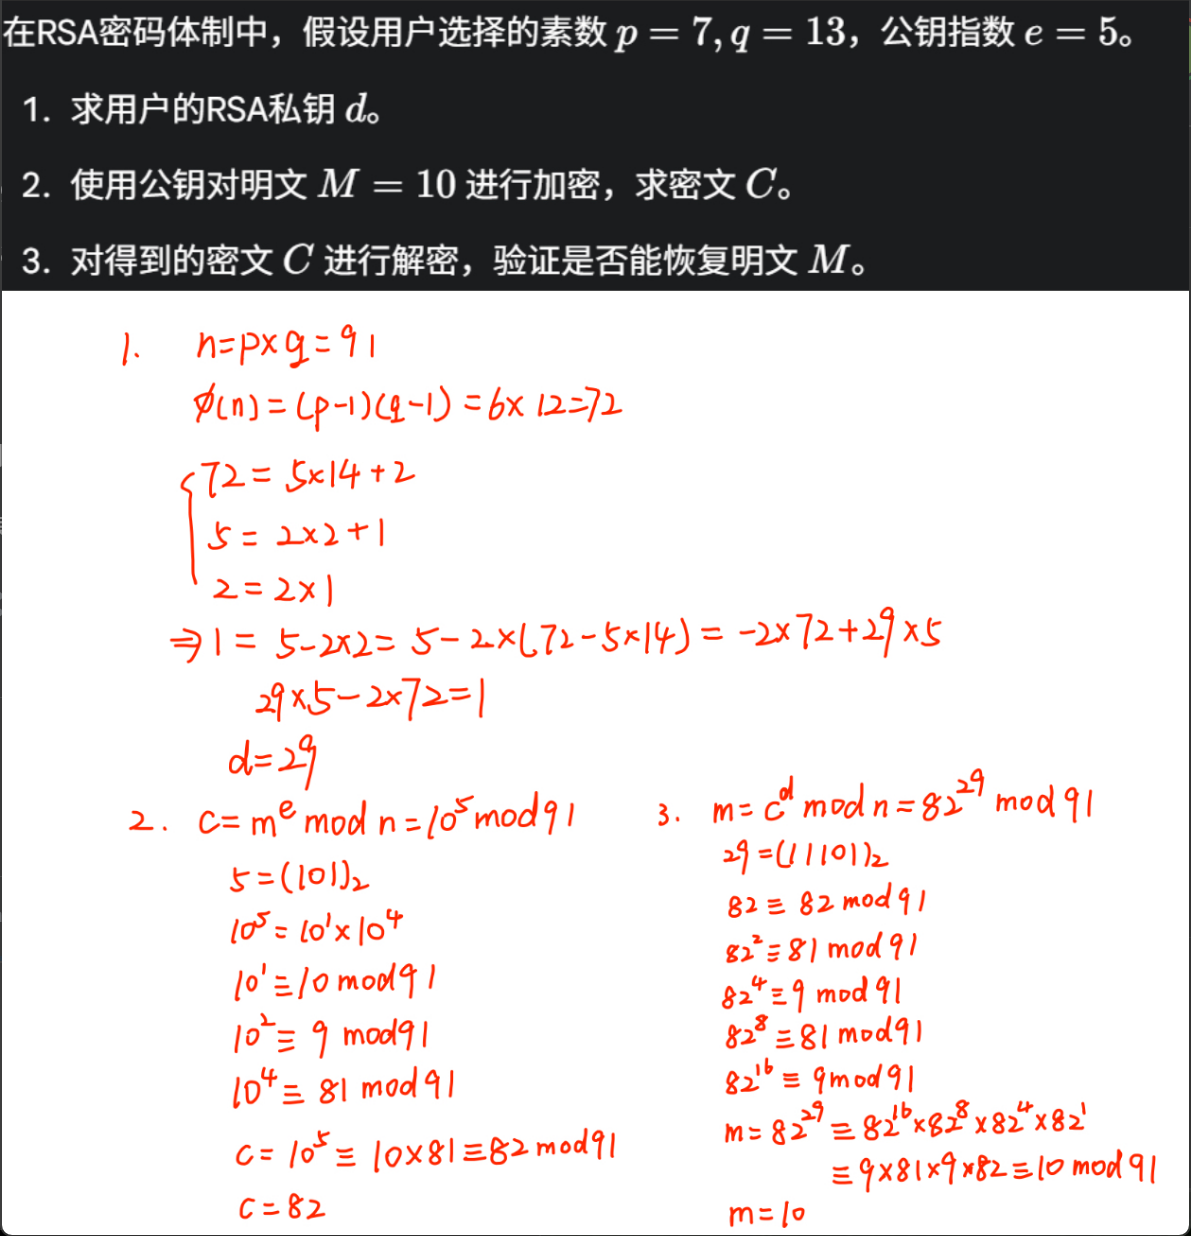 在RSA密码体制中，假设用户选择的素数 p = 7, q = 13，公钥指数 e = 5。
1. 求用户的RSA私钥 d。
2. 使用公钥对明文 M = 10 进行加密，求密文 C。
3. 对得到的密文 C 进行解密，验证是否能恢复明文 M。
1. n=p×q=91
φ(n)=(p-1)(q-1)=6×12=72
72=5×14+2
5=2×2+1
2=2×1
⇒1=5-2×2=5-2×(72-5×14)=-2×72+29×5
29×5-2×72=1
d=29
2. c=m^e mod n=10^5 mod 91
5=(101)₂
10^5=10^1×10^4
10^1≡10 mod 91
10^2≡9 mod 91
10^4≡81 mod 91
c=10^5≡10×81≡82 mod 91
c=82
3. m=c^d mod n=82^29 mod 91
29=(11101)₂
82≡82 mod 91
82^2≡81 mod 91
82^4≡9 mod 91
82^8≡81 mod 91
82^16≡9 mod 91
m=82^29≡82^16×82^8×82^4×82^1
≡9×81×9×82≡10 mod 91
m=10